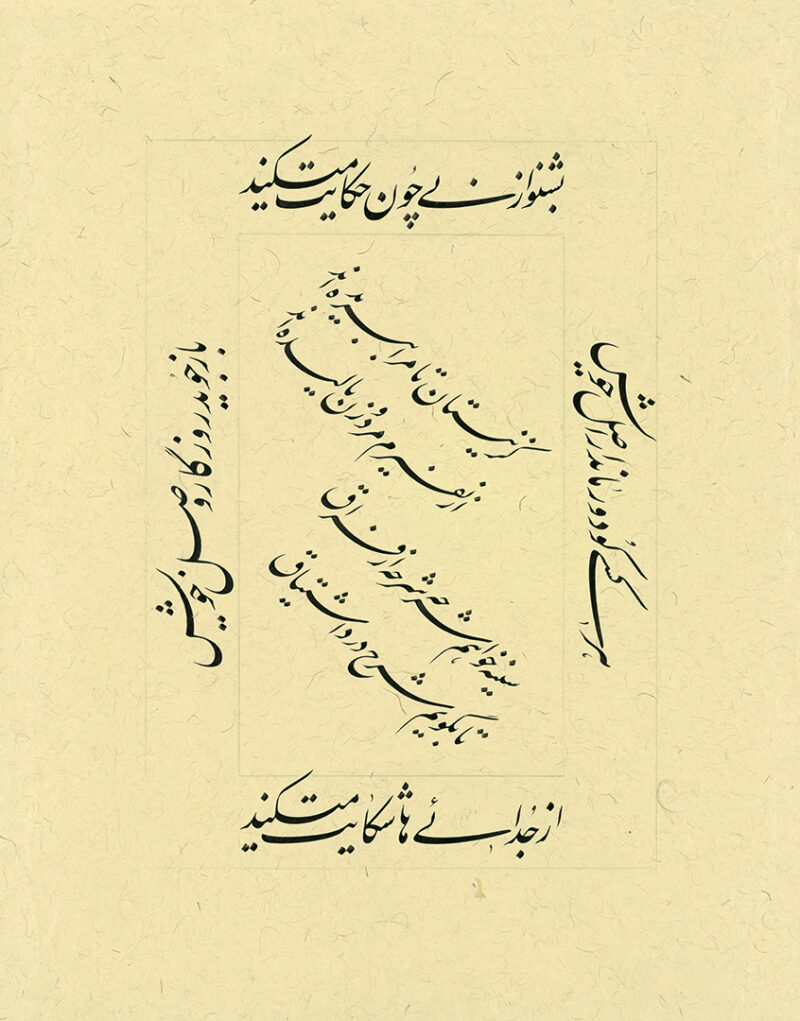 بشنو از نے چُون حکایت میکند
از جُدائے ها شکایت میکند
کز نیستان تا مرا ببریده اند
از نفیرم مرد و زن نالیده اند
سینه خواهم شرحه شرحه از فراق
تا بگویم شرح درد اشتیاق
هر کسے کُو دور ماند از اصل خویش
باز جوید روزگار وصل خویش